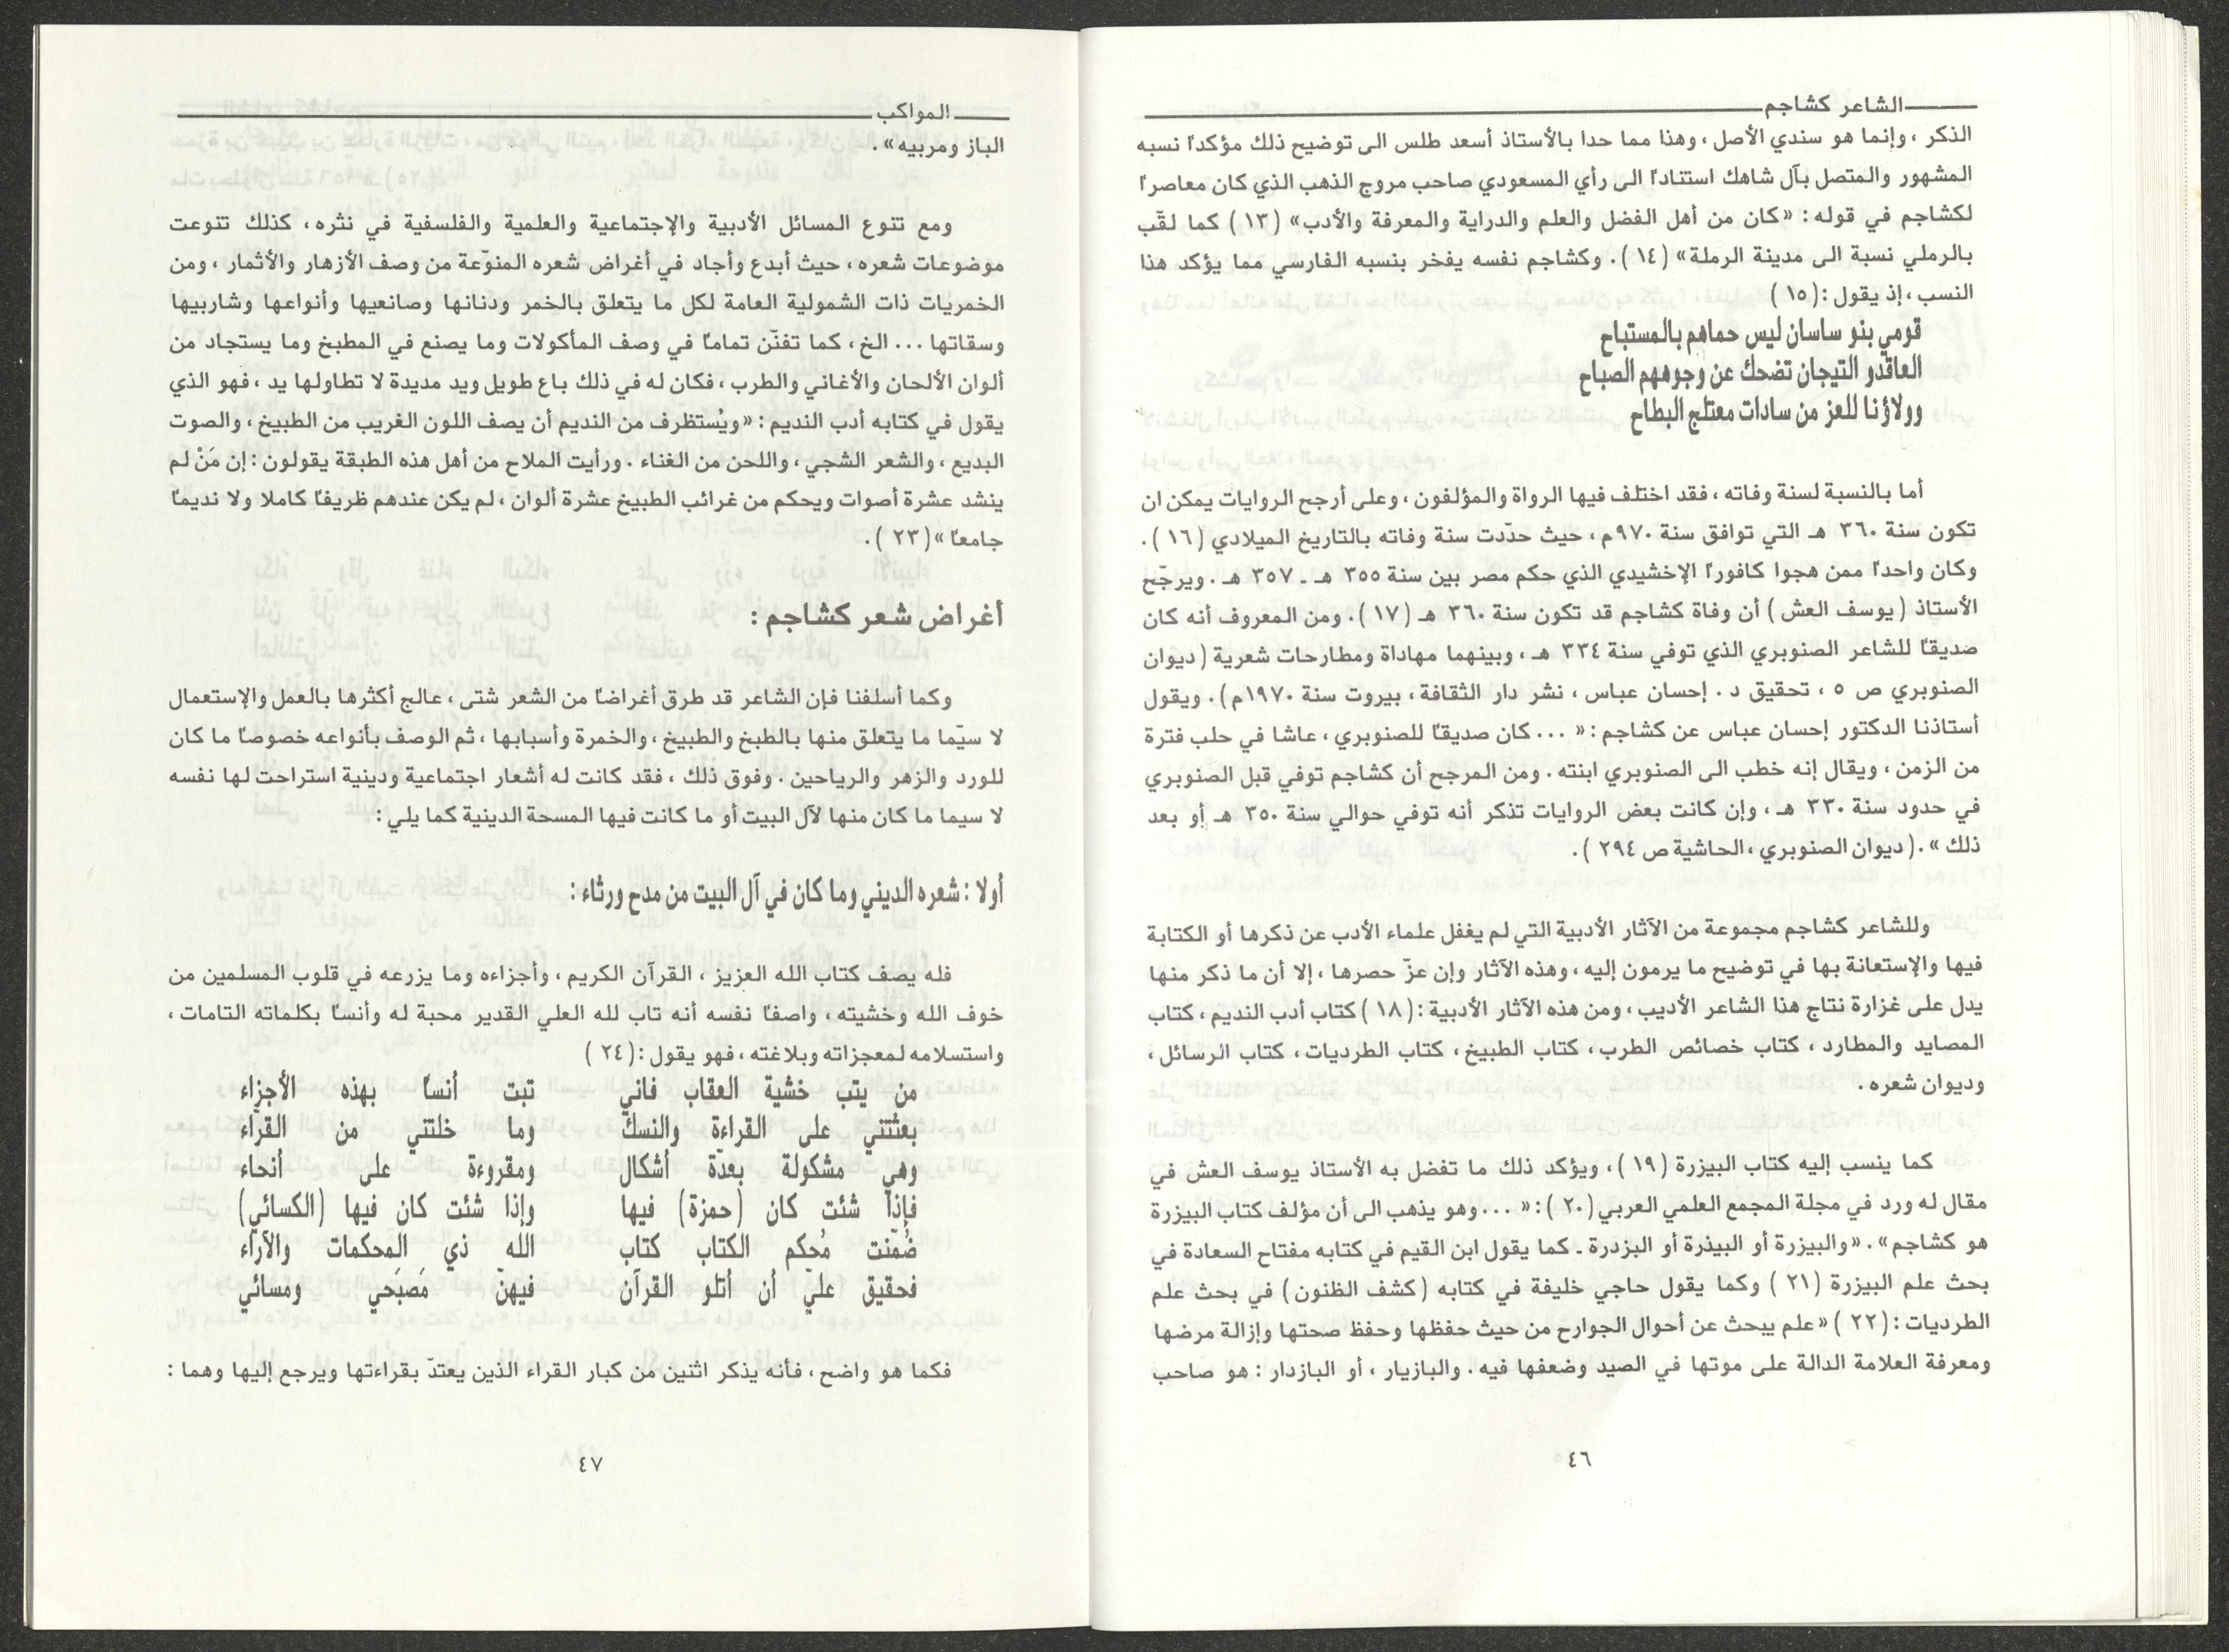 الشاعر كشاجم
الذكر ، وإنما هو سندي الأصل ، وهذا مما حدا بالأستاذ أسعد طلس الى توضيح ذلك مؤكدًا نسبه
المشهور والمتصل بآل شاهك استنادًا الى رأي المسعودي صاحب مروج الذهب الذي كان معاصرًا
لكشاجم في قوله : «كان من أهل الفضل والعلم والدراية والمعرفة والأدب» (١٣) كما لقّب
بالرملي نسبة الى مدينة الرملة» (١٤) . وكشاجم نفسه يفخر بنسبه الفارسي مما يؤكد هذا
النسب ، إذ يقول : (١٥)
قومي بنو ساسان ليس حماهم بالمستباح
العاقدو التيجان تضحك عن وجوههم الصباح
وولاؤنا للعز من سادات معتلج البطاح
أما بالنسبة لسنة وفاته ، فقد اختلف فيها الرواة والمؤلفون ، وعلى أرجح الروايات يمكن ان
تكون سنة ٣٦٠ هـ التي توافق سنة ٩٧٠م ، حيث حدّدت سنة وفاته بالتاريخ الميلادي (١٦) .
وكان واحدًا ممن هجوا كافورًا الإخشيدي الذي حكم مصر بين سنة ٣٥٥ هـ ـ ٣٥٧ هـ . ويرجّح
الأستاذ (يوسف العش) أن وفاة كشاجم قد تكون سنة ٣٦٠ هـ (١٧) . ومن المعروف أنه كان
صديقًا للشاعر الصنوبري الذي توفي سنة ٣٣٤ هـ ، وبينهما مهاداة ومطارحات شعرية (ديوان
الصنوبري ص ٥ ، تحقيق د . إحسان عباس ، نشر دار الثقافة ، بيروت سنة ١٩٧٠م) . ويقول
أستاذنا الدكتور إحسان عباس عن كشاجم : « ... كان صديقًا للصنوبري ، عاشا في حلب فترة
من الزمن ، ويقال إنه خطب الى الصنوبري ابنته . ومن المرجح أن كشاجم توفي قبل الصنوبري
في حدود سنة ٣٣٠ هـ ، وإن كانت بعض الروايات تذكر أنه توفي حوالي سنة ٣٥٠ هـ أو بعد
ذلك » . (ديوان الصنوبري ، الحاشية ص ٢٩٤) .
وللشاعر كشاجم مجموعة من الآثار الأدبية التي لم يغفل علماء الأدب عن ذكرها أو الكتابة
فيها والإستعانة بها في توضيح ما يرمون إليه ، وهذه الآثار وإن عزّ حصرها ، إلا أن ما ذكر منها
يدل على غزارة نتاج هذا الشاعر الأديب ، ومن هذه الآثار الأدبية : (١٨) كتاب أدب النديم ، كتاب
المصايد والمطارد ، كتاب خصائص الطرب ، كتاب الطبيخ ، كتاب الطرديات ، كتاب الرسائل ،
وديوان شعره .
كما ينسب إليه كتاب البيزرة (١٩) ، ويؤكد ذلك ما تفضل به الأستاذ يوسف العش في
مقال له ورد في مجلة المجمع العلمي العربي (٢٠) : « ... وهو يذهب الى أن مؤلف كتاب البيزرة
هو كشاجم» . «والبيزرة أو البيذرة أو البزدرة ـ كما يقول ابن القيم في كتابه مفتاح السعادة في
بحث علم البيزرة (٢١) وكما يقول حاجي خليفة في كتابه (كشف الظنون) في بحث علم
الطرديات : (٢٢) «علم يبحث عن أحوال الجوارح من حيث حفظها وحفظ صحتها وإزالة مرضها
ومعرفة العلامة الدالة على موتها في الصيد وضعفها فيه . والبازيار ، أو البازدار : هو صاحب
٤٦
المواكب
الباز ومربيه» .
ومع تنوع المسائل الأدبية والإجتماعية والعلمية والفلسفية في نثره ، كذلك تنوعت
موضوعات شعره ، حيث أبدع وأجاد في أغراض شعره المنوّعة من وصف الأزهار والأثمار ، ومن
الخمريات ذات الشمولية العامة لكل ما يتعلق بالخمر ودنانها وصانعيها وأنواعها وشاربيها
وسقاتها ... الخ ، كما تفنّن تمامًا في وصف المأكولات وما يصنع في المطبخ وما يستجاد من
ألوان الألحان والأغاني والطرب ، فكان له في ذلك باع طويل ويد مديدة لا تطاولها يد ، فهو الذي
يقول في كتابه أدب النديم : «ويُستظرف من النديم أن يصف اللون الغريب من الطبيخ ، والصوت
البديع ، والشعر الشجي ، واللحن من الغناء . ورأيت الملاح من أهل هذه الطبقة يقولون : إن مَنْ لم
ينشد عشرة أصوات ويحكم من غرائب الطبيخ عشرة ألوان ، لم يكن عندهم ظريفًا كاملا ولا نديمًا
جامعًا » (٢٣) .
أغراض شعر كشاجم :
وكما أسلفنا فإن الشاعر قد طرق أغراضًا من الشعر شتى ، عالج أكثرها بالعمل والإستعمال
لا سيّما ما يتعلق منها بالطبخ والطبيخ ، والخمرة وأسبابها ، ثم الوصف بأنواعه خصوصًا ما كان
للورد والزهر والرياحين . وفوق ذلك ، فقد كانت له أشعار اجتماعية ودينية استراحت لها نفسه
لا سيما ما كان منها لآل البيت أو ما كانت فيها المسحة الدينية كما يلي :
أولا : شعره الديني وما كان في آل البيت من مدح ورثاء :
فله يصف كتاب الله العزيز ، القرآن الكريم ، وأجزاءه وما يزرعه في قلوب المسلمين من
خوف الله وخشيته ، واصفًا نفسه أنه تاب لله العلي القدير محبة له وأنسًا بكلماته التامات ،
واستسلامه لمعجزاته وبلاغته ، فهو يقول : (٢٤)
من يتب خشية العقاب فاني تبت أنسًا بهذه الأجزاء
بعثتني على القراءة والنسك وما خلتني من القرّاء
وهي مشكولة بعدّة أشكال ومقروءة على أنحاء
فإذا شئت كان (حمزة) فيها وإذا شئت كان فيها (الكسائي)
ضُمّنت مُحكم الكتاب كتاب الله ذي المحكمات والآراء
فحقيق عليّ أن أتلو القرآن فيهنّ مَصبَحي ومسائي
فكما هو واضح ، فأنه يذكر اثنين من كبار القراء الذين يعتدّ بقراءتها ويرجع إليها وهما :
٤٧